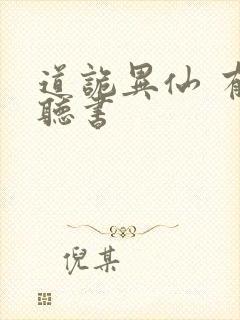 道詭異仙
聽書
倪某